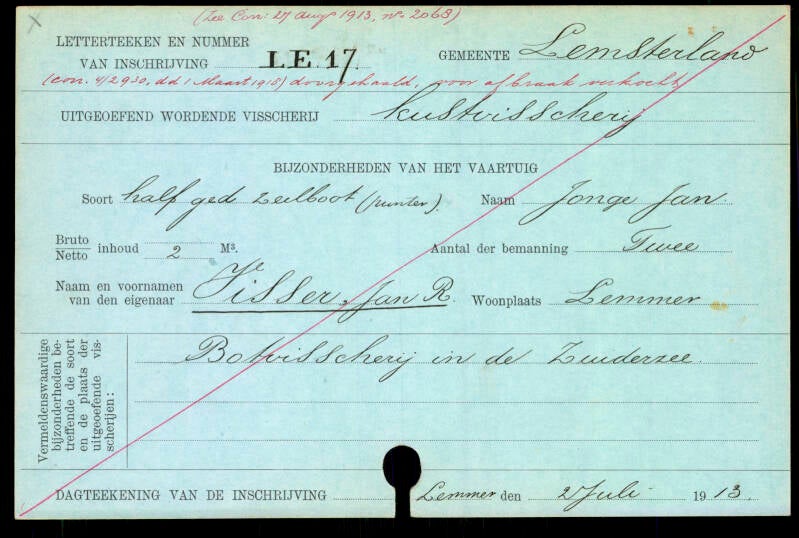 (Zie Con: 27 aug 1913, no. 2068)
LETTERTEEKEN EN NUMMER
VAN INSCHRIJVING LE. 17. GEMEENTE Lemsterland
(con. 4/2930, dd 1 Maart 1918) doorgehaald, voor afbraak verkocht
UITGEOEFEND WORDENDE VISSCHERIJ kustvisscherij
BIJZONDERHEDEN VAN HET VAARTUIG
Soort half ged zeilboot (punter). Naam Jonge Jan.
Bruto
Netto inhoud 2 M³. Aantal der bemanning Twee
Naam en voornamen
van den eigenaar Visser, Jan R. Woonplaats Lemmer
Vermeldenswaardige
bijzonderheden be-
treffende de soort
en de plaats der
uitgeoefende vis-
scherijen:
Botvisscherij in de Zuiderzee.
DAGTEEKENING VAN DE INSCHRIJVING Lemmer den 2 Juli 1913.